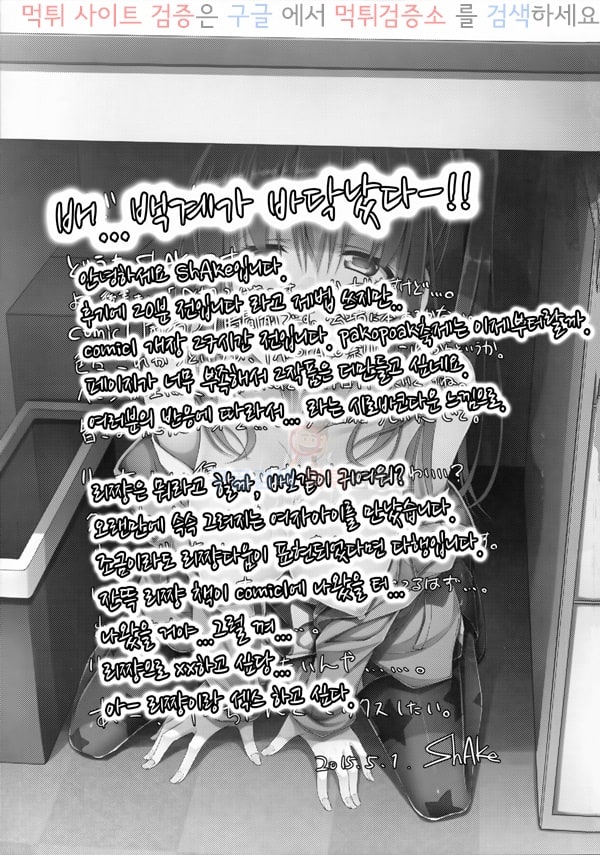 먹튀 사이트 검증은 구글 에서 먹튀검증소 를 검색하세요
배"...백계가 바닥났다-!!
안녕하세요 ShAke입니다.
후기에 20분 전입니다 라고 제법 쓰지만..
comic1 개장 2시간 전입니다. pakopoak축제는 이제부터랄까.
페이지가 너무 부족해서 2작품은 더만들고 싶네요.
여러분의 반응에 따라서... 라는 시로바코다운 느낌으로.
리쨩은 뭐라고 할까, 바보같이 귀여워!?
오랜만에 슥슥 그려지는 여자아이를 만났습니다.
조금이라도 리쨩다움이 표현되었다면 다행입니다.
잔뜩 리쨩 책이 comic1에 나왔을 터...
나왔을 거야...그럴 껴...
리쨩으로 xx하고 싶당...
아- 리쨩이랑 섹스 하고 싶다.
2015.5.1. ShAke